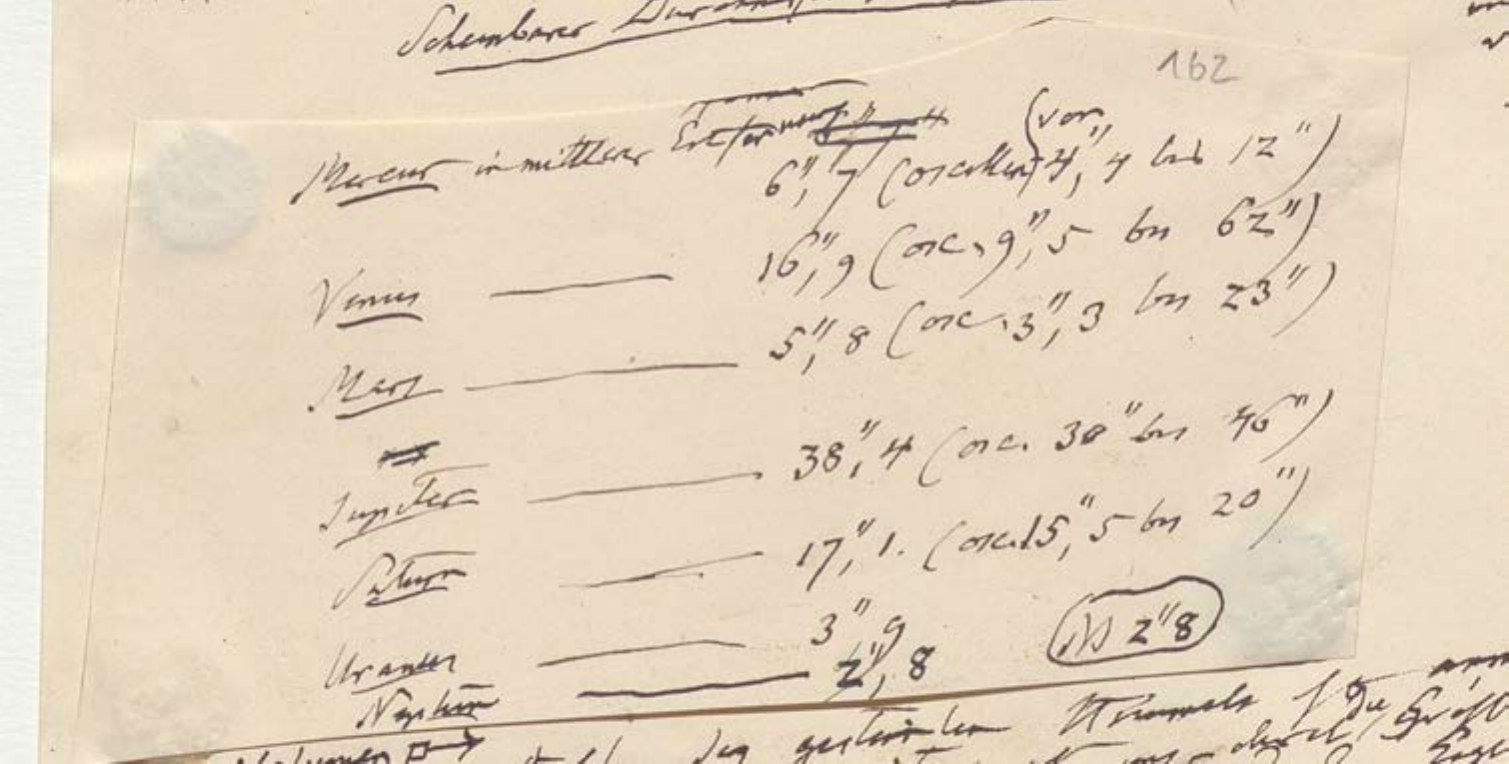 Scheinbarer
162
Mercur in mittlerer Entfernung
6",7 (oscillirt (von 4",4 bis 12")
Venus ——— 16",9 (osc. 9",5 bis 62")
Mars ——— 5",8 (osc. 3",3 bis 23")
Jupiter ——— 38",4 (osc. 30" bis 46")
Saturn ——— 17",1. (osc. 15",5 bis 20")
Uranus ——— 3"9
Neptun ——— 2",8
NB 2"8
des gestirnten Himmels die
durch